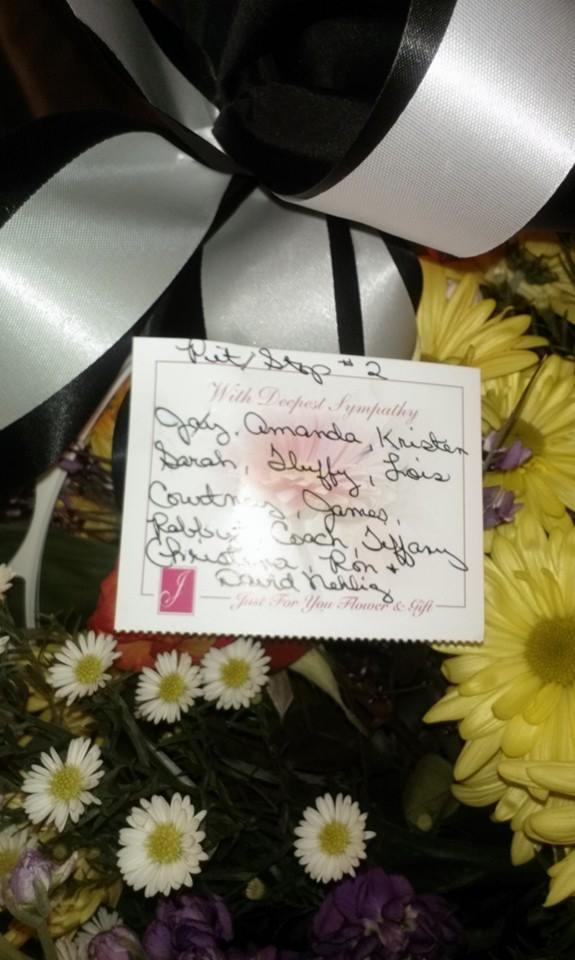 Pit Stop #2
With Deepest Sympathy
Joey, Amanda, Kristen
Sarah, Fluffy, Lois
Courtney, James,
Robby, Coach, Tiffany
Christina, Ron +
David Nehlig
J Just For You Flower & Gift